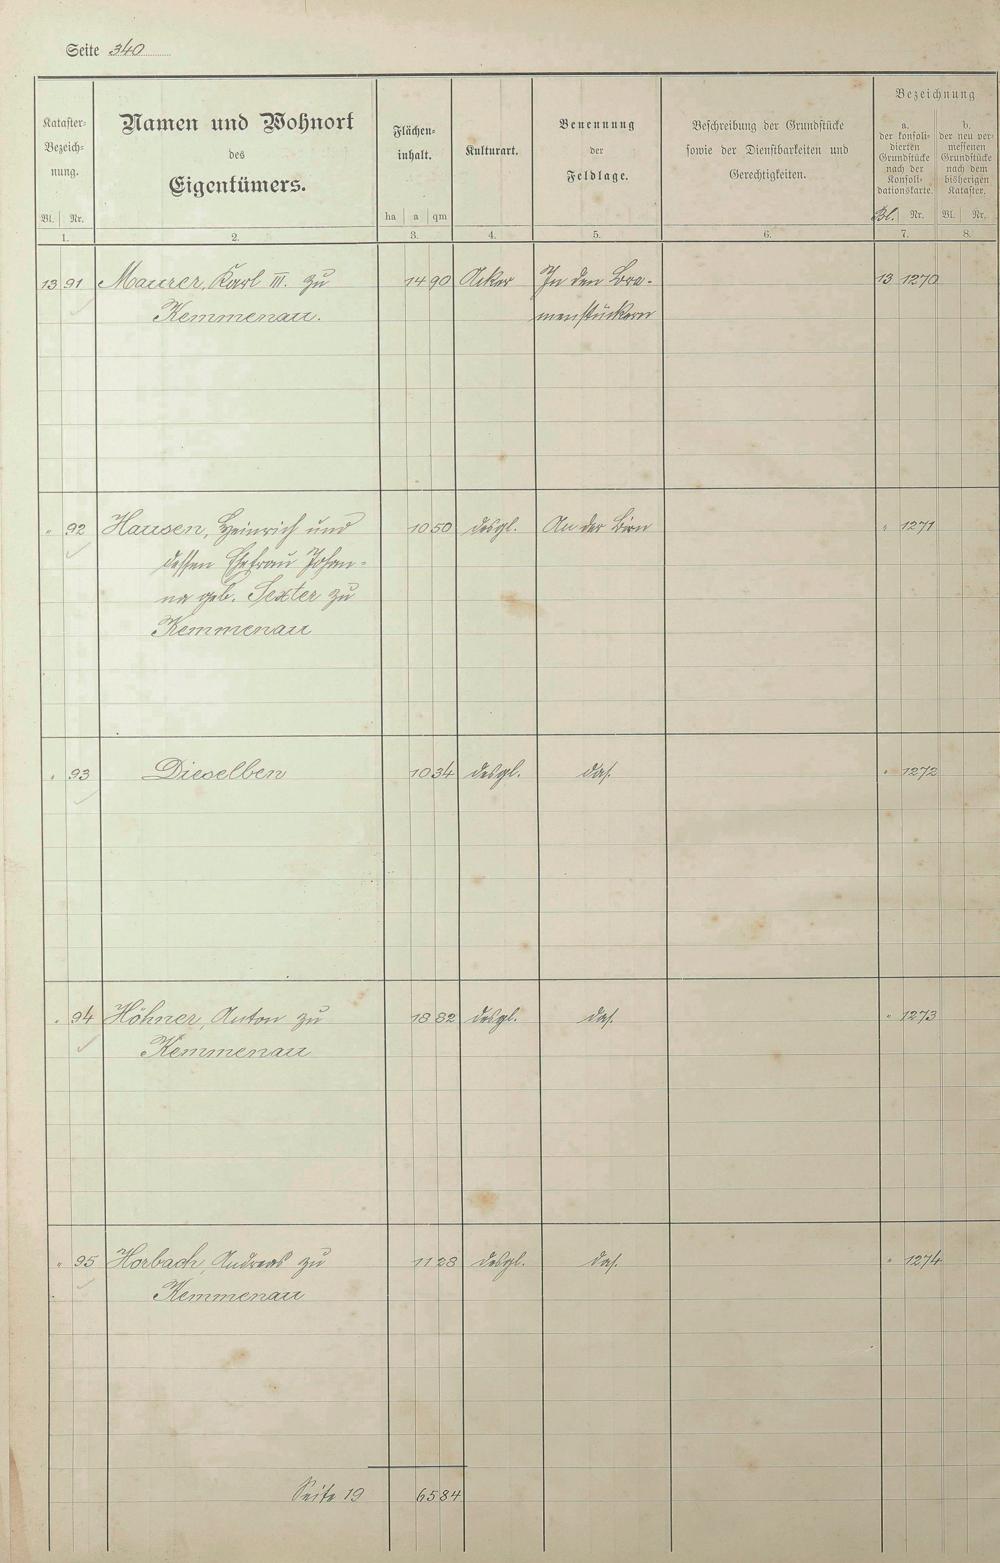 Seite 340
Kataster-
Bezeich-
nung.
Bl. Nr.
1.
Namen und Wohnort
des
Eigentümers.
2.
Flächen-
inhalt.
ha a qm
3.
Kulturart.
4.
Benennung
der
Feldlage.
5.
Beschreibung der Grundstücke
sowie der Dienstbarkeiten und
Gerechtigkeiten.
6.
Bezeichnung
a.
der konsoli-
dierten
Grundstücke
nach der
Konsoli-
dationskarte.
Bl. Nr.
7.
b.
der neu ver-
messenen
Grundstücke
nach dem
bisherigen
Kataster.
Bl. Nr.
8.
13 91 Maurer, Karl III. zu 14 90 Acker In den Bra- 13 1270
Kemmenau. menstückern
" 92 Hausen, Heinrich und 10 50 desgl. An der Birn " 1271
dessen Ehefrau Johan-
na geb. Sexter zu
Kemmenau
" 93 Dieselben 10 34 desgl. das. " 1272
" 94 Höhner, Anton zu 18 82 desgl. das. " 1273
Kemmenau
" 95 Horbach, Andreas zu 11 28 desgl. das. " 1274
Kemmenau
Seite 19 65 84